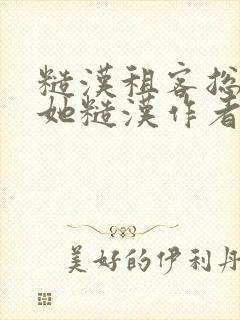 糙漢租客總
她糙漢作者
美好的伊利丹